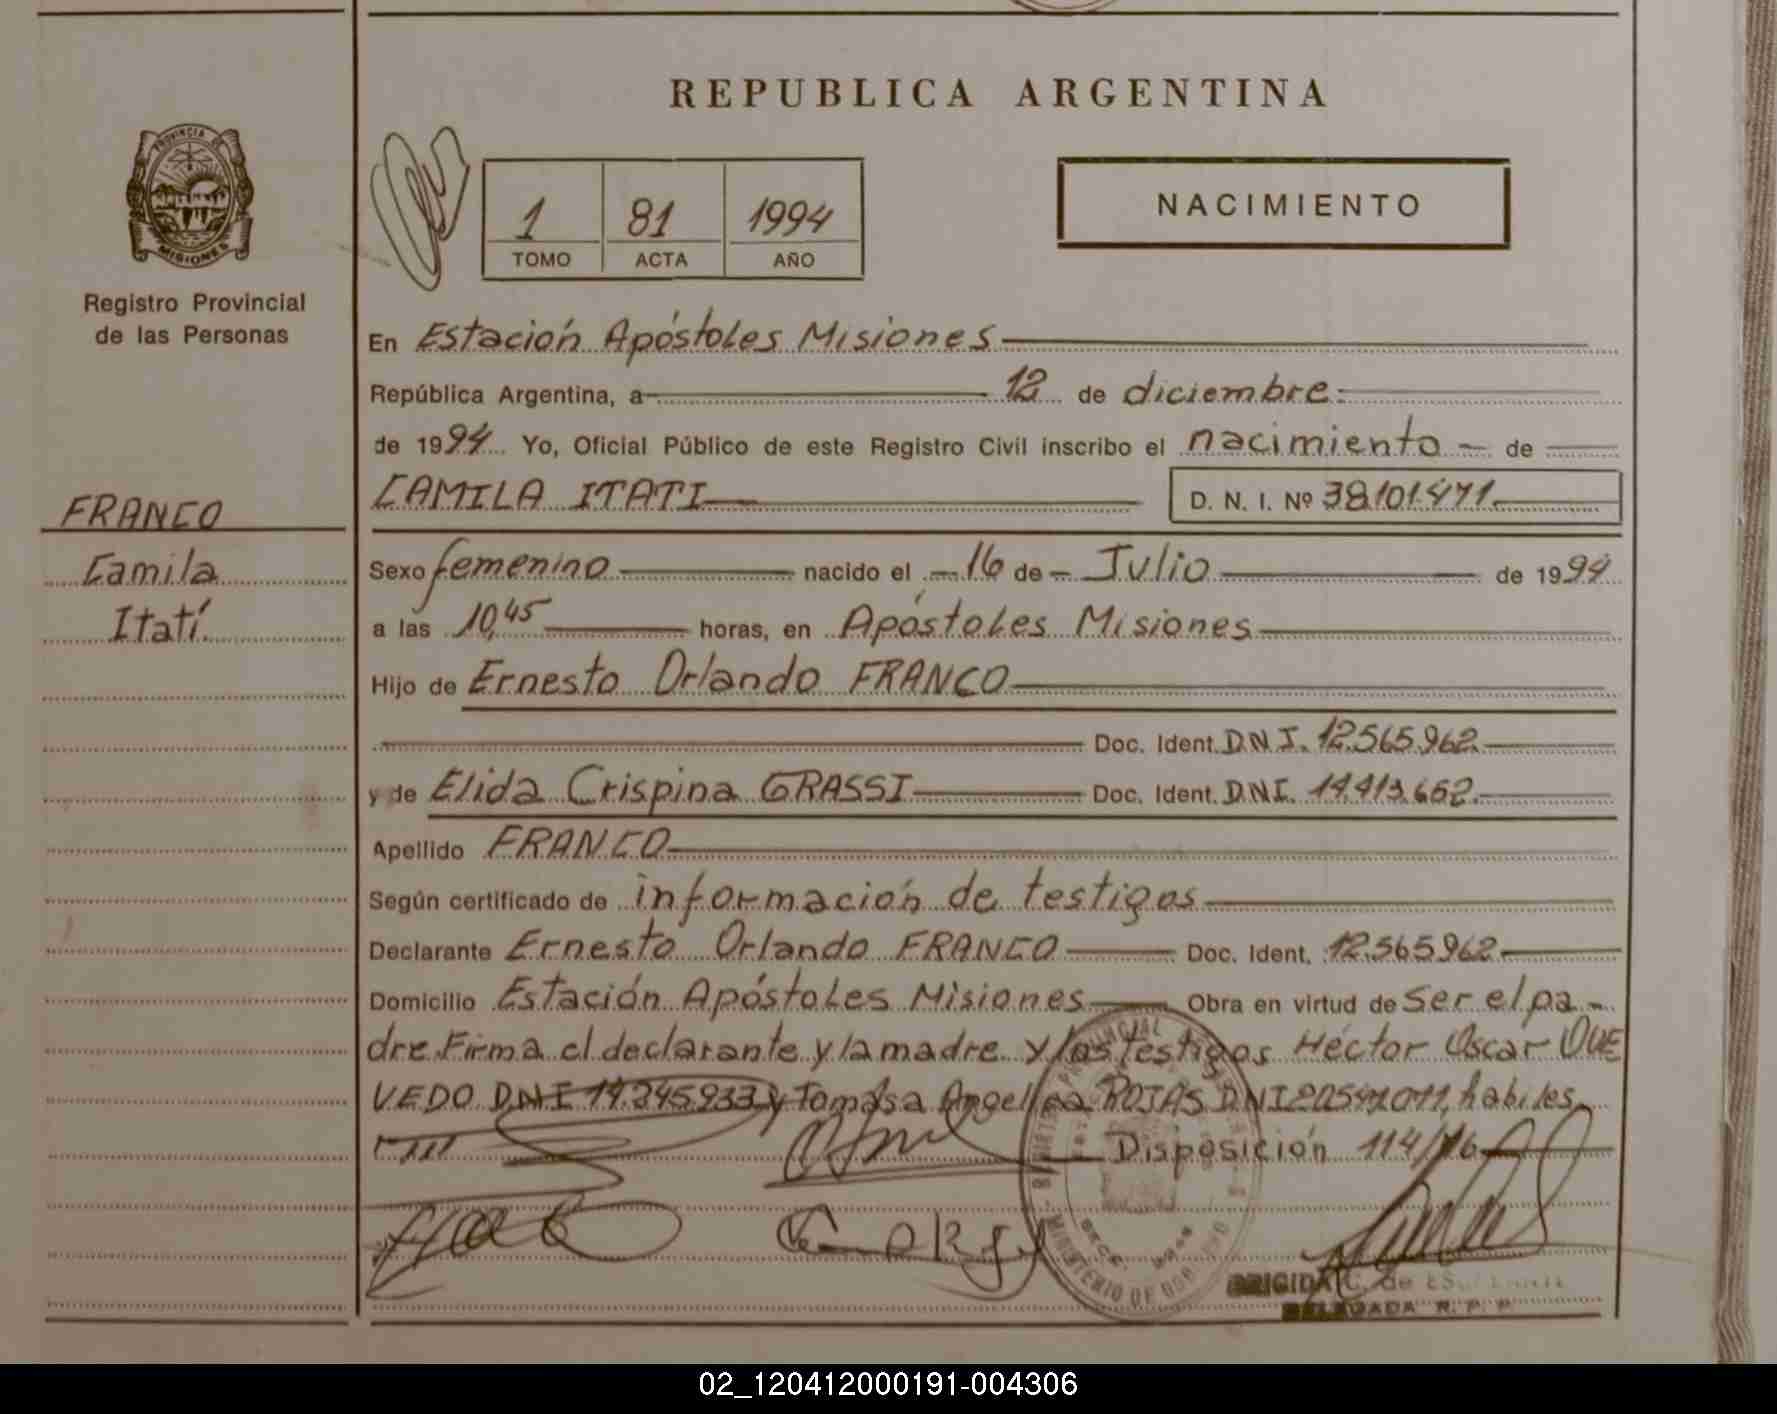 REPUBLICA ARGENTINA
PROVINCIA DE MISIONES
Registro Provincial
de las Personas
1 81 1994
TOMO ACTA AÑO
NACIMIENTO
FRANCO
Camila
Itatí
En Estación Apóstoles Misiones
República Argentina, a 12 de diciembre
de 1994 Yo, Oficial Público de este Registro Civil inscribo el nacimiento de
CAMILA ITATI D. N. I. Nº 38.101.471
Sexo femenino nacido el 16 de Julio de 1994
a las 10,45 horas, en Apóstoles Misiones
Hijo de Ernesto Orlando FRANCO
Doc. Ident. D.N.I. 12.565.962
y de Elida Crispina GRASSI Doc. Ident. D.N.I. 14.413.662
Apellido FRANCO
Según certificado de información de testigos
Declarante Ernesto Orlando FRANCO Doc. Ident. 12.565.962
Domicilio Estación Apóstoles Misiones Obra en virtud de ser el pa-
dre. Firma el declarante y la madre y los testigos Héctor Oscar QUE
VEDO DNI y Tomasa Angelica ROJAS DNI habiles
Disposición 114/
BRIGIDA C. de
DELEGADA R. P. P.
02_120412000191-004306